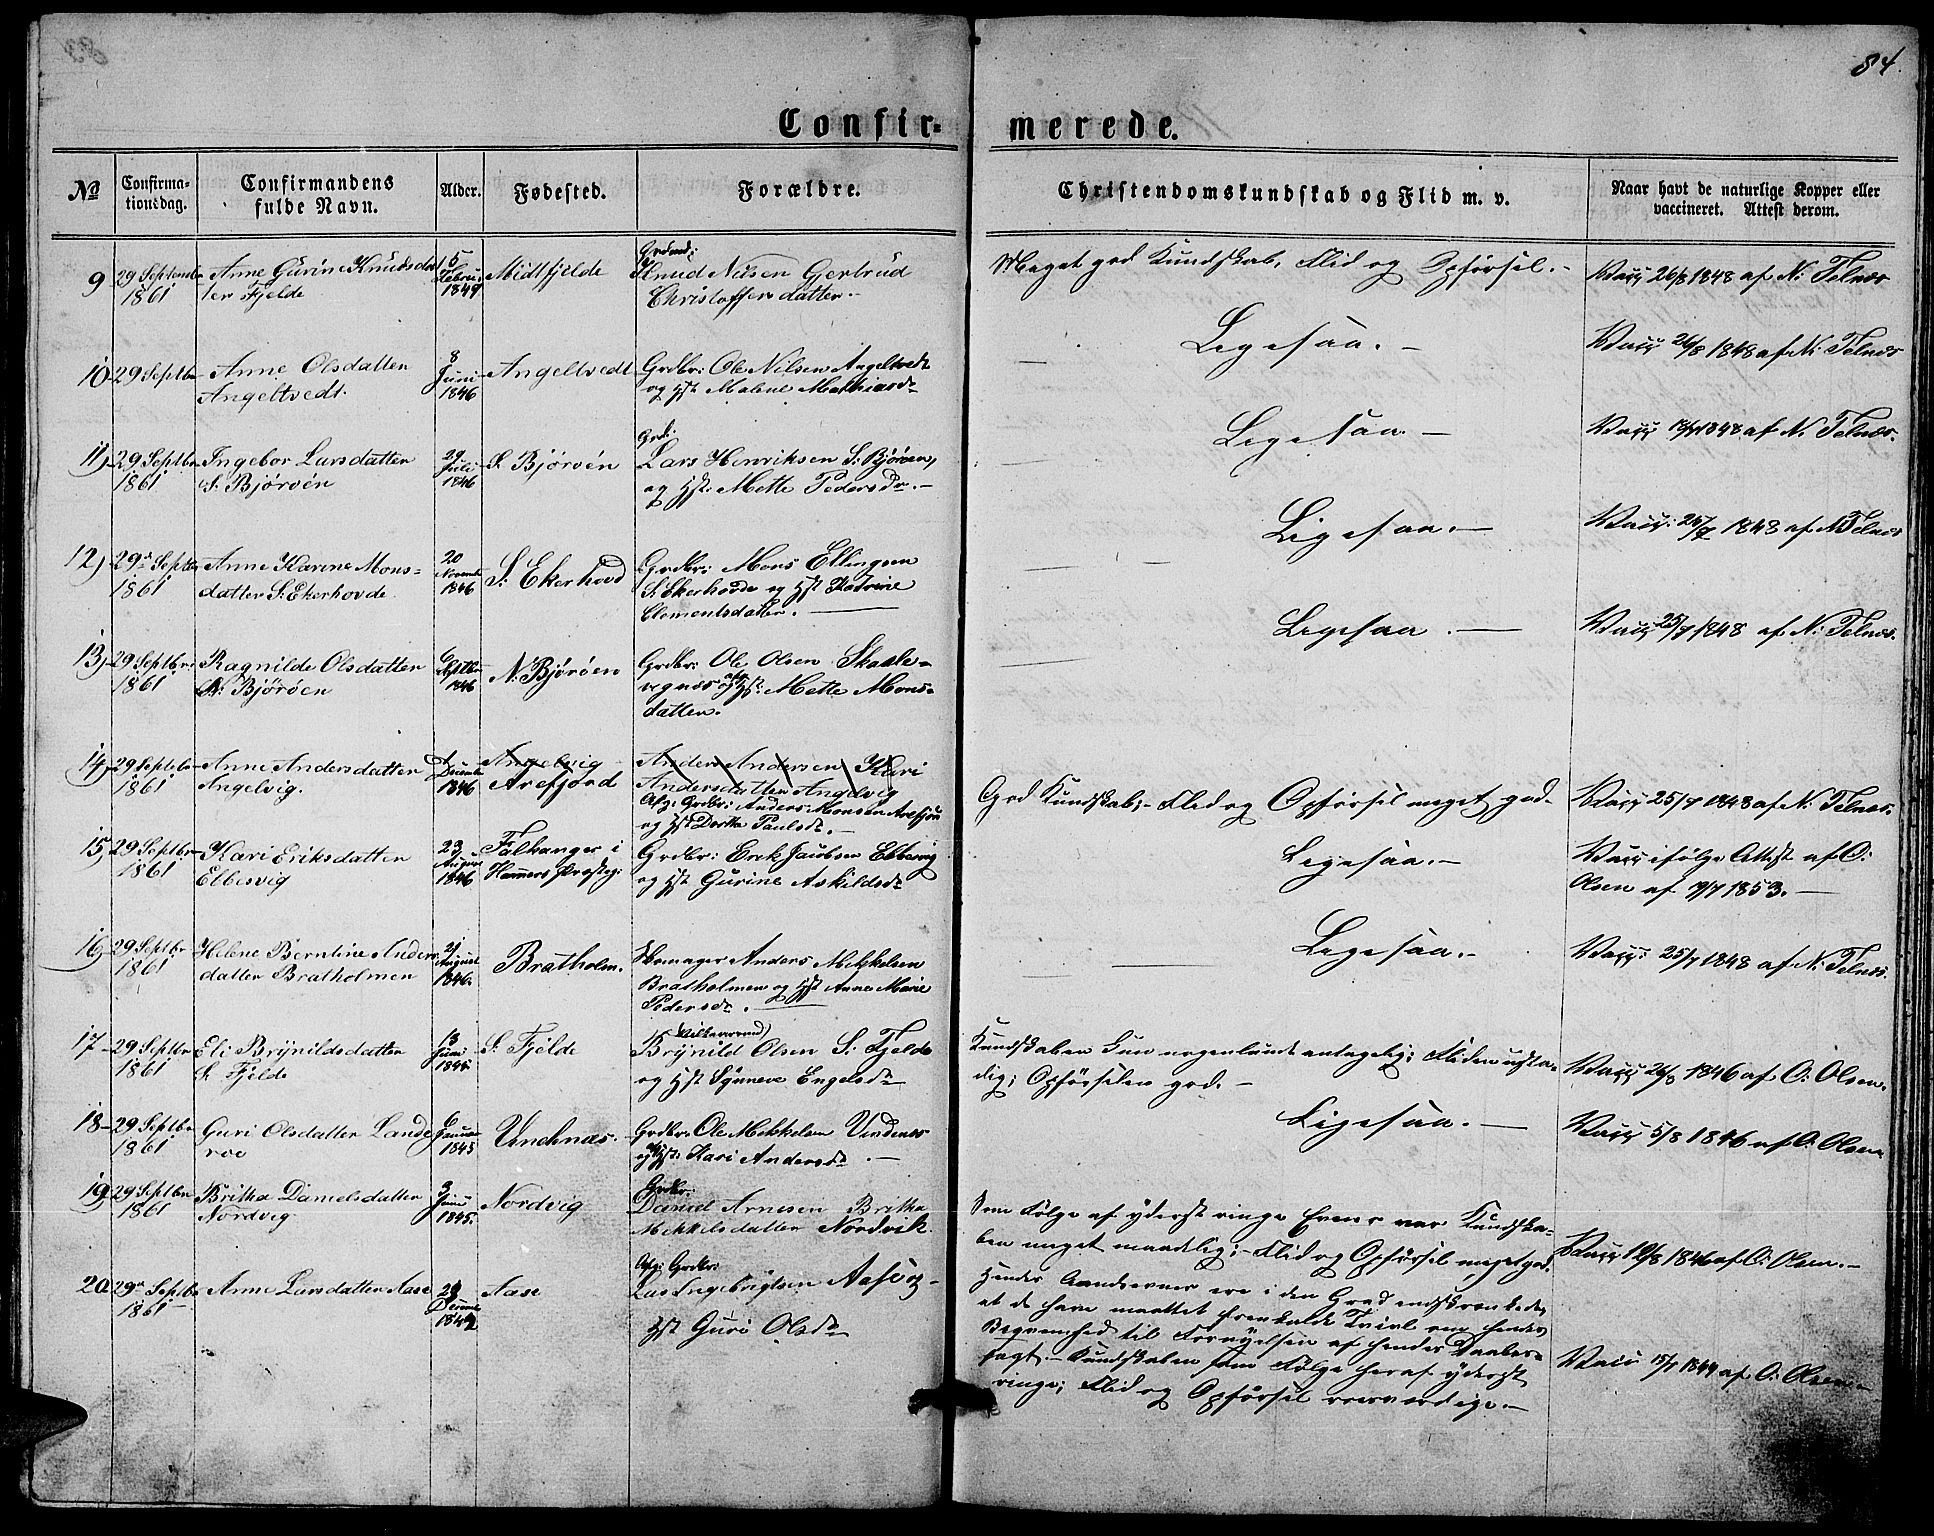 84.
Confir-
merede.
No
Confirma-
tionsdag.
Confirmandens
fulde Navn.
Alder.
Fødested.
Forældre.
Christendomskundskab og Flid m. v.
Naar havt de naturlige Kopper eller
vaccineret. Attest derom.
9 29 Septembr 1861
Anne Gurine Knudsdat
ter Fjelde
15 Febru 1847
Midtfjelde
Grdmd:
Knud Nilsen Gertrud
Christoffersdatter.
Meget god Kundskab, Flid og Opførsel. –
Vacc 26/8 1848 af N: Telnæs
10 29 Septbr
Anne Olsdatter
Angeltvedt.
8 Juni 1846
Angeltvedt
Grdbr: Ole Nilsen Angeltvedt
og Hst Malene Mathiasdr
Ligesaa. –
Vacc 26/8 1848 af N: Telnæs
11, 29 Septbr 1861
Ingebor Larsdatter
S. Bjørøen
29 Juli 1846
S. Bjørøen
Grd:
Lars Henriksen S: Bjørøen,
og Hst: Mette Pedersdr. –
Ligesaa –
Vacc 1848 af N. Telnæs.
12, 29de Septbr 1861
Anne Karine Mons-
datter S: Ekerhovde
20 Novembr 1846
S: Ekerhovd
Grdbr: Mons Ellingsen
S. Ekerhovde og Hst Katrine
Clementsdatter.
Ligesaa. –
Vacc: 25/7 1848 af N Telnæs
13, 29 Septbr: 1861
Ragnilde Olsdatter
N: Bjørøen
6 Septbr 1846
N: Bjørøen
Grdbr: Ole Olsen Skaale-
vignæs og afg. Hst: Mette Mons-
datter.
Ligesaa. –
Vacc 25/7 1848 af N: Telnæs.
14, 29 Septbr 1861
Anne Andersdatter
Angelvig.
1 Decembr 1846
Angelvig
Arefjord
Anders Andersen Kari
Andersdatter Angelvig
Afg: Grdbr: Anders Monsen Arefjord
og Hst Dorthe Paulsdr. –
God Kundskab; – Flid og Opførsel meget god.
Vacc 25/7 1848 af N: Telnæs.
15, 29 Septbr 1861
Kari Eriksdatter
Ebbesvig
23 August 1846
Falkanger i
Hammers Præsteg:
Grdbr: Erik Jacobsen Ebbesvig
og Hst Gurine Askildsdr
Ligesaa. –
Vacc ifølge Attest af O:
Olsen af 19/7 1853. –
16, 29 Septbr 1861
Helene Berntine Anders-
datter Bratholmen
21 August 1846.
Bratholm.
Skomager Anders Mikkelsen
Bratholmen og Hst Anne Marie
Pedersdr.
Ligesaa. –
Vacc: 25/7 1848 af N: Telnæs.
17 – 29 Septbr 1861
Eli Brynildsdatter
S. Fjelde
13 Juni 1845
S. Fjelde
(Vilkaarsmd)
Brynild Olsen S: Fjelde
og Hst Synneve Engelsdr
Kundskaben kun nogenlunde antagelig; Fliden ustа-
dig; Opførselen god. –
Vacc 26/8 1846 af O: Olsen.
18 – 29 Septbr 1861
Guri Olsdatter Lande
roe
6 Januar 1845
Vindenæs.
Grdbr: Ole Mikkelsen Vindenæs
og Hst: Kari Andersdr. –
Ligesaa. –
Vacc 5/8 1846 af O: Olsen
19, 29 Septbr 1861
Britha Danielsdatter
Nordvig
3 Juni 1845.
Nordvig
Grdbr:
Daniel Arnesen Britha
Mikkelsdatter Nordvik.
Som Følge af yderst ringe Evner var Kundska-
ben meget maadelig; – Flid og Opførsel meget god.
Vacc 10/8 1846 af O: Olsen. –
20 29de Septbr 1861
Anne Larsdatter Aase
Decembr
Aase
Afg: Grdbr:
Lars Ingebrigtsen Aase og
Hst Guri Olsdr
Hendes Aandsevner ere i den Grad indskrænkede,
at de have maattet fremkalde Tvivl om hendes
Begvemhed til Fornyelsen af hendes Daabs-
pagt. – Kundskaben som Følge heraf yderst
ringe; Flid og Opførsel roesværdige. –
Vacc 15/7 1844 af O: Olsen